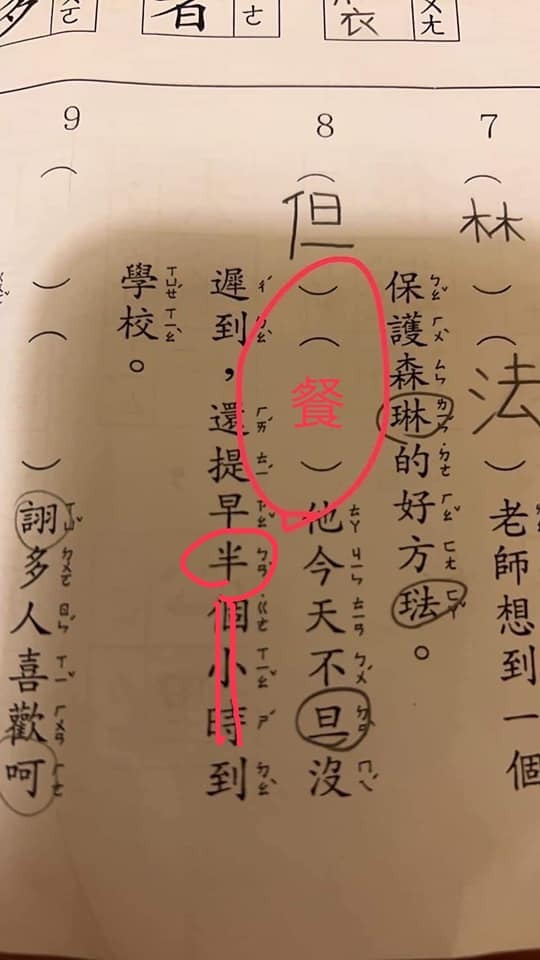 7（林）（法）老師想到一個
保護森琳的好方琺。
8（但）（餐）他今天不旦沒
遲到，還提早半個小時到
學校。
9（）（）詡多人喜歡呵